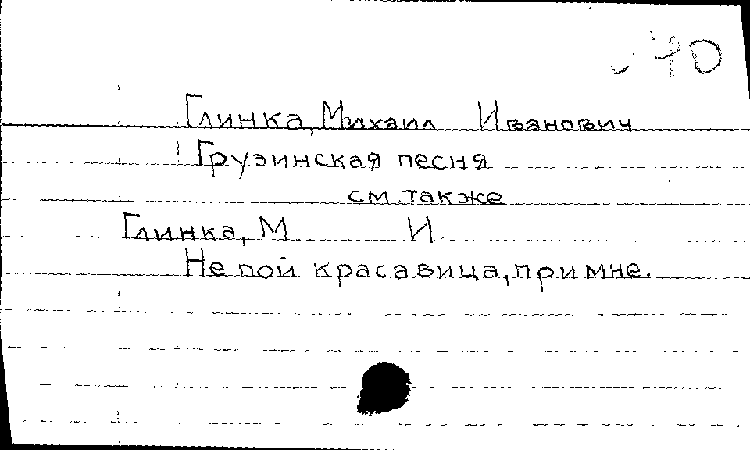 40
Глинка, Михаил Иванович
Грузинская песня
см. также
Глинка, М И
Не пой красавица, при мне.